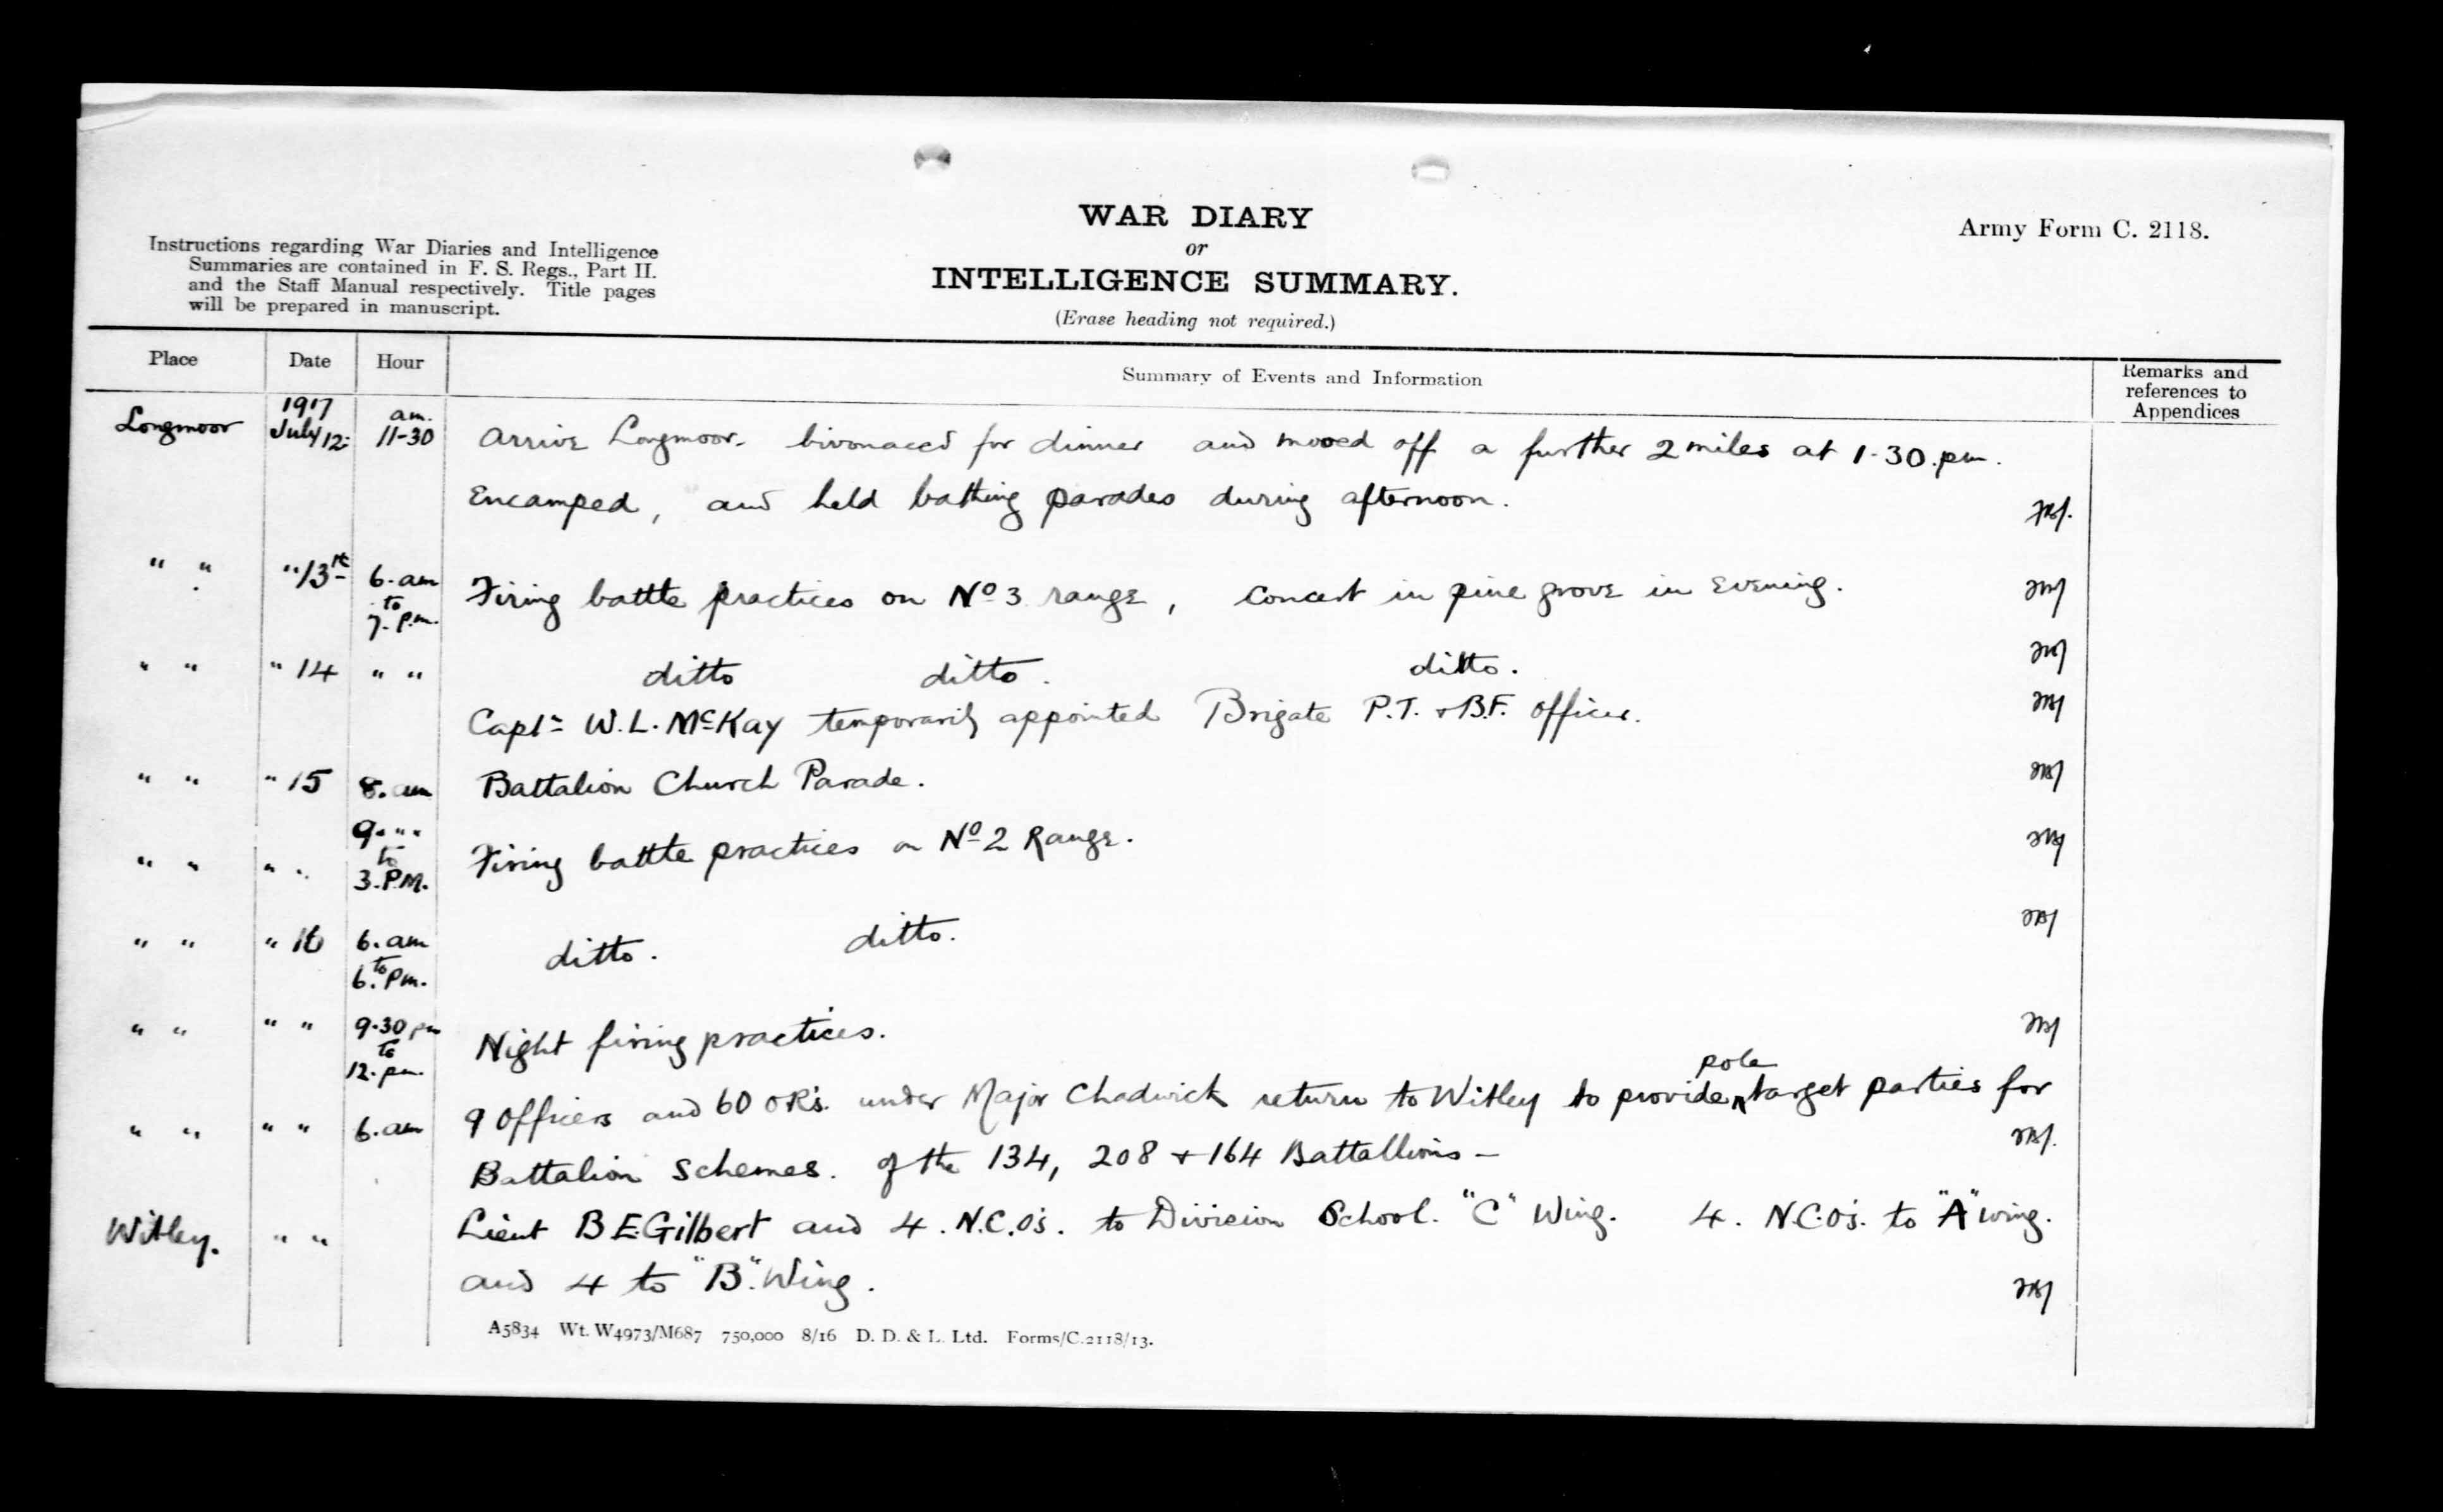 WAR DIARY
or
INTELLIGENCE SUMMARY.
(Erase heading not required.)
Army Form C. 2118.
Instructions regarding War Diaries and Intelligence
Summaries are contained in F. S. Regs., Part II.
and the Staff Manual respectively. Title pages
will be prepared in manuscript.
Place Date Hour Summary of Events and Information Remarks and references to Appendices
Longmoor 1917 July 12: am. 11-30 Arrive Longmoor. bivouaced for dinner and moved off a further 2 miles at 1-30.pm.
Encamped, and held bathing parades during afternoon.
" " " 13th 6.am to 7.p.m. Firing battle practices on No 3 range, Concert in pine grove in Evening.
" " " 14 " " ditto ditto. ditto.
Captn W.L. McKay temporarily appointed Brigate P.T. + B.F. Officer.
" " " 15 8.am Battalion Church Parade.
" " " " 9. " " to 3.P.M. Firing battle practices on No 2 Range.
" " " 16 6.am to 6.Pm. ditto. ditto.
" " " " 9.30 pm to 12.pm. Night firing practices.
" " " " 6.am 9 Officers and 60 ORs. under Major Chadwick return to Witley to provide pole target parties for
Battalion Schemes. of the 134, 208 + 164 Battallions -
Witley. " " Lieut B.E.Gilbert and 4. N.C.O's. to Division School. "C" Wing. 4. N.C.O's. to "A" wing.
and 4 to "B". Wing.
A5834 Wt. W4973/M687 750,000 8/16 D. D. & L. Ltd. Forms/C.2118/13.